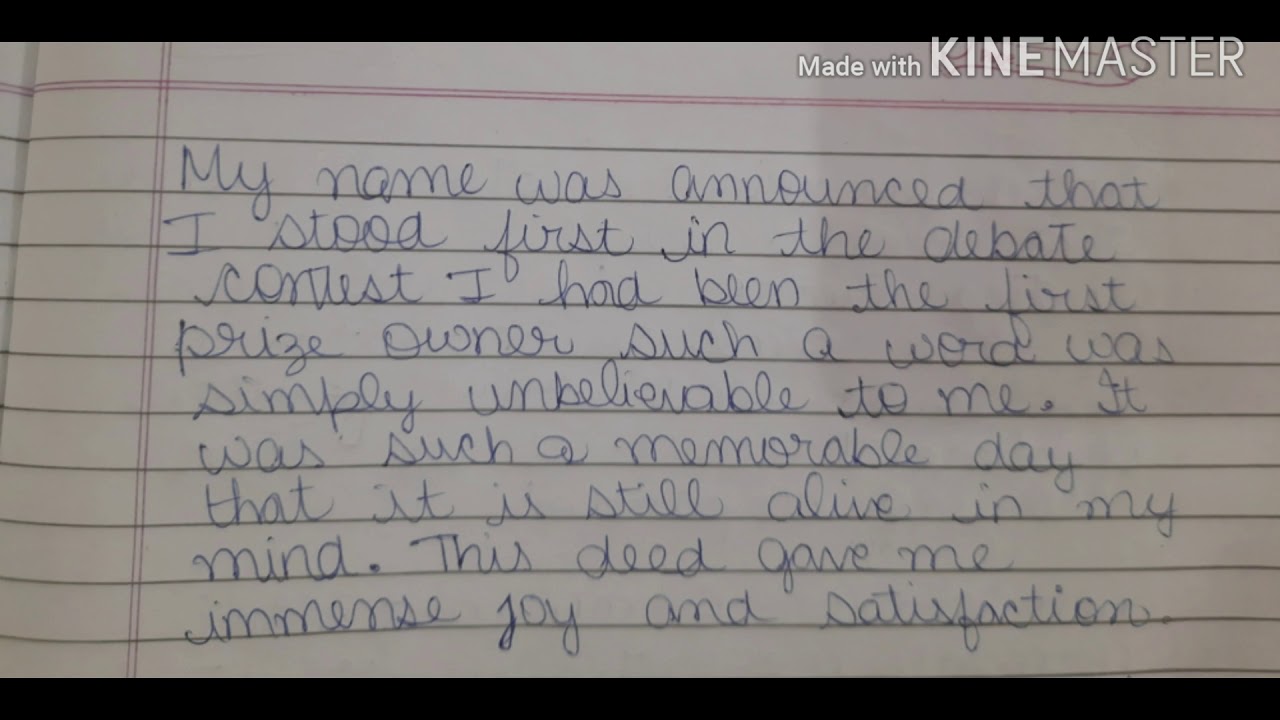 Made with KINEMASTER
My name was announced that
I stood first in the debate
contest I had been the first
prize owner such a word was
simply unbelievable to me. It
was such a memorable day
that it is still alive in my
mind. This deed gave me
immense joy and satisfaction.